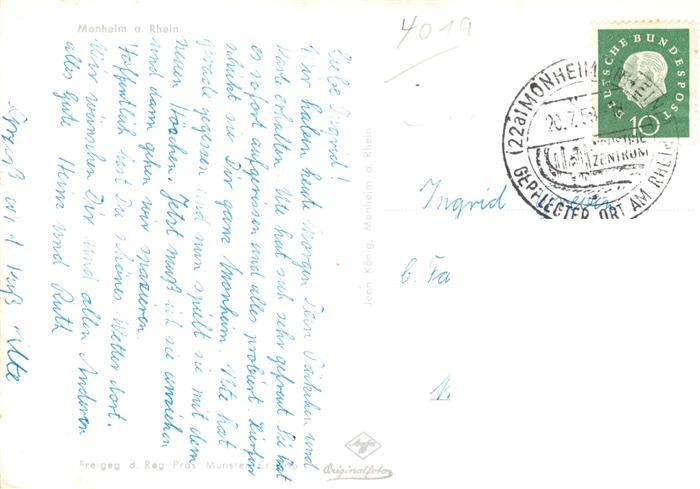 Monheim a. Rhein
4019
Liebe Ingrid!
Wir haben heute Morgen Dein Päckchen und
Karte erhalten. Ute hat sich sehr gefreut. Sie hat
es sofort aufgerissen und alles probiert. Dafür
schickt sie Dir ganz Monheim. Ute hat
gerade gegessen und nun spielt sie mit dem
neuen Jetzt muß ich sie anziehen
und dann gehen wir spazieren.
Hoffentlich hast Du schönes Wetter dort.
Wir wünschen Dir und allen Anderen
alles Gute Heim und Ruth
Gruß und Kuß Ute
Freigeg d. Reg Präs Münster
Jean König, Monheim a. Rhein
Agfa
Originalfoto
DEUTSCHE BUNDESPOST
10
(22a) MONHEIM RHEIN
20.7.59
ZENTRUM
GEPFLEGTER ORT AM RHEIN
Ingrid
b. Fa